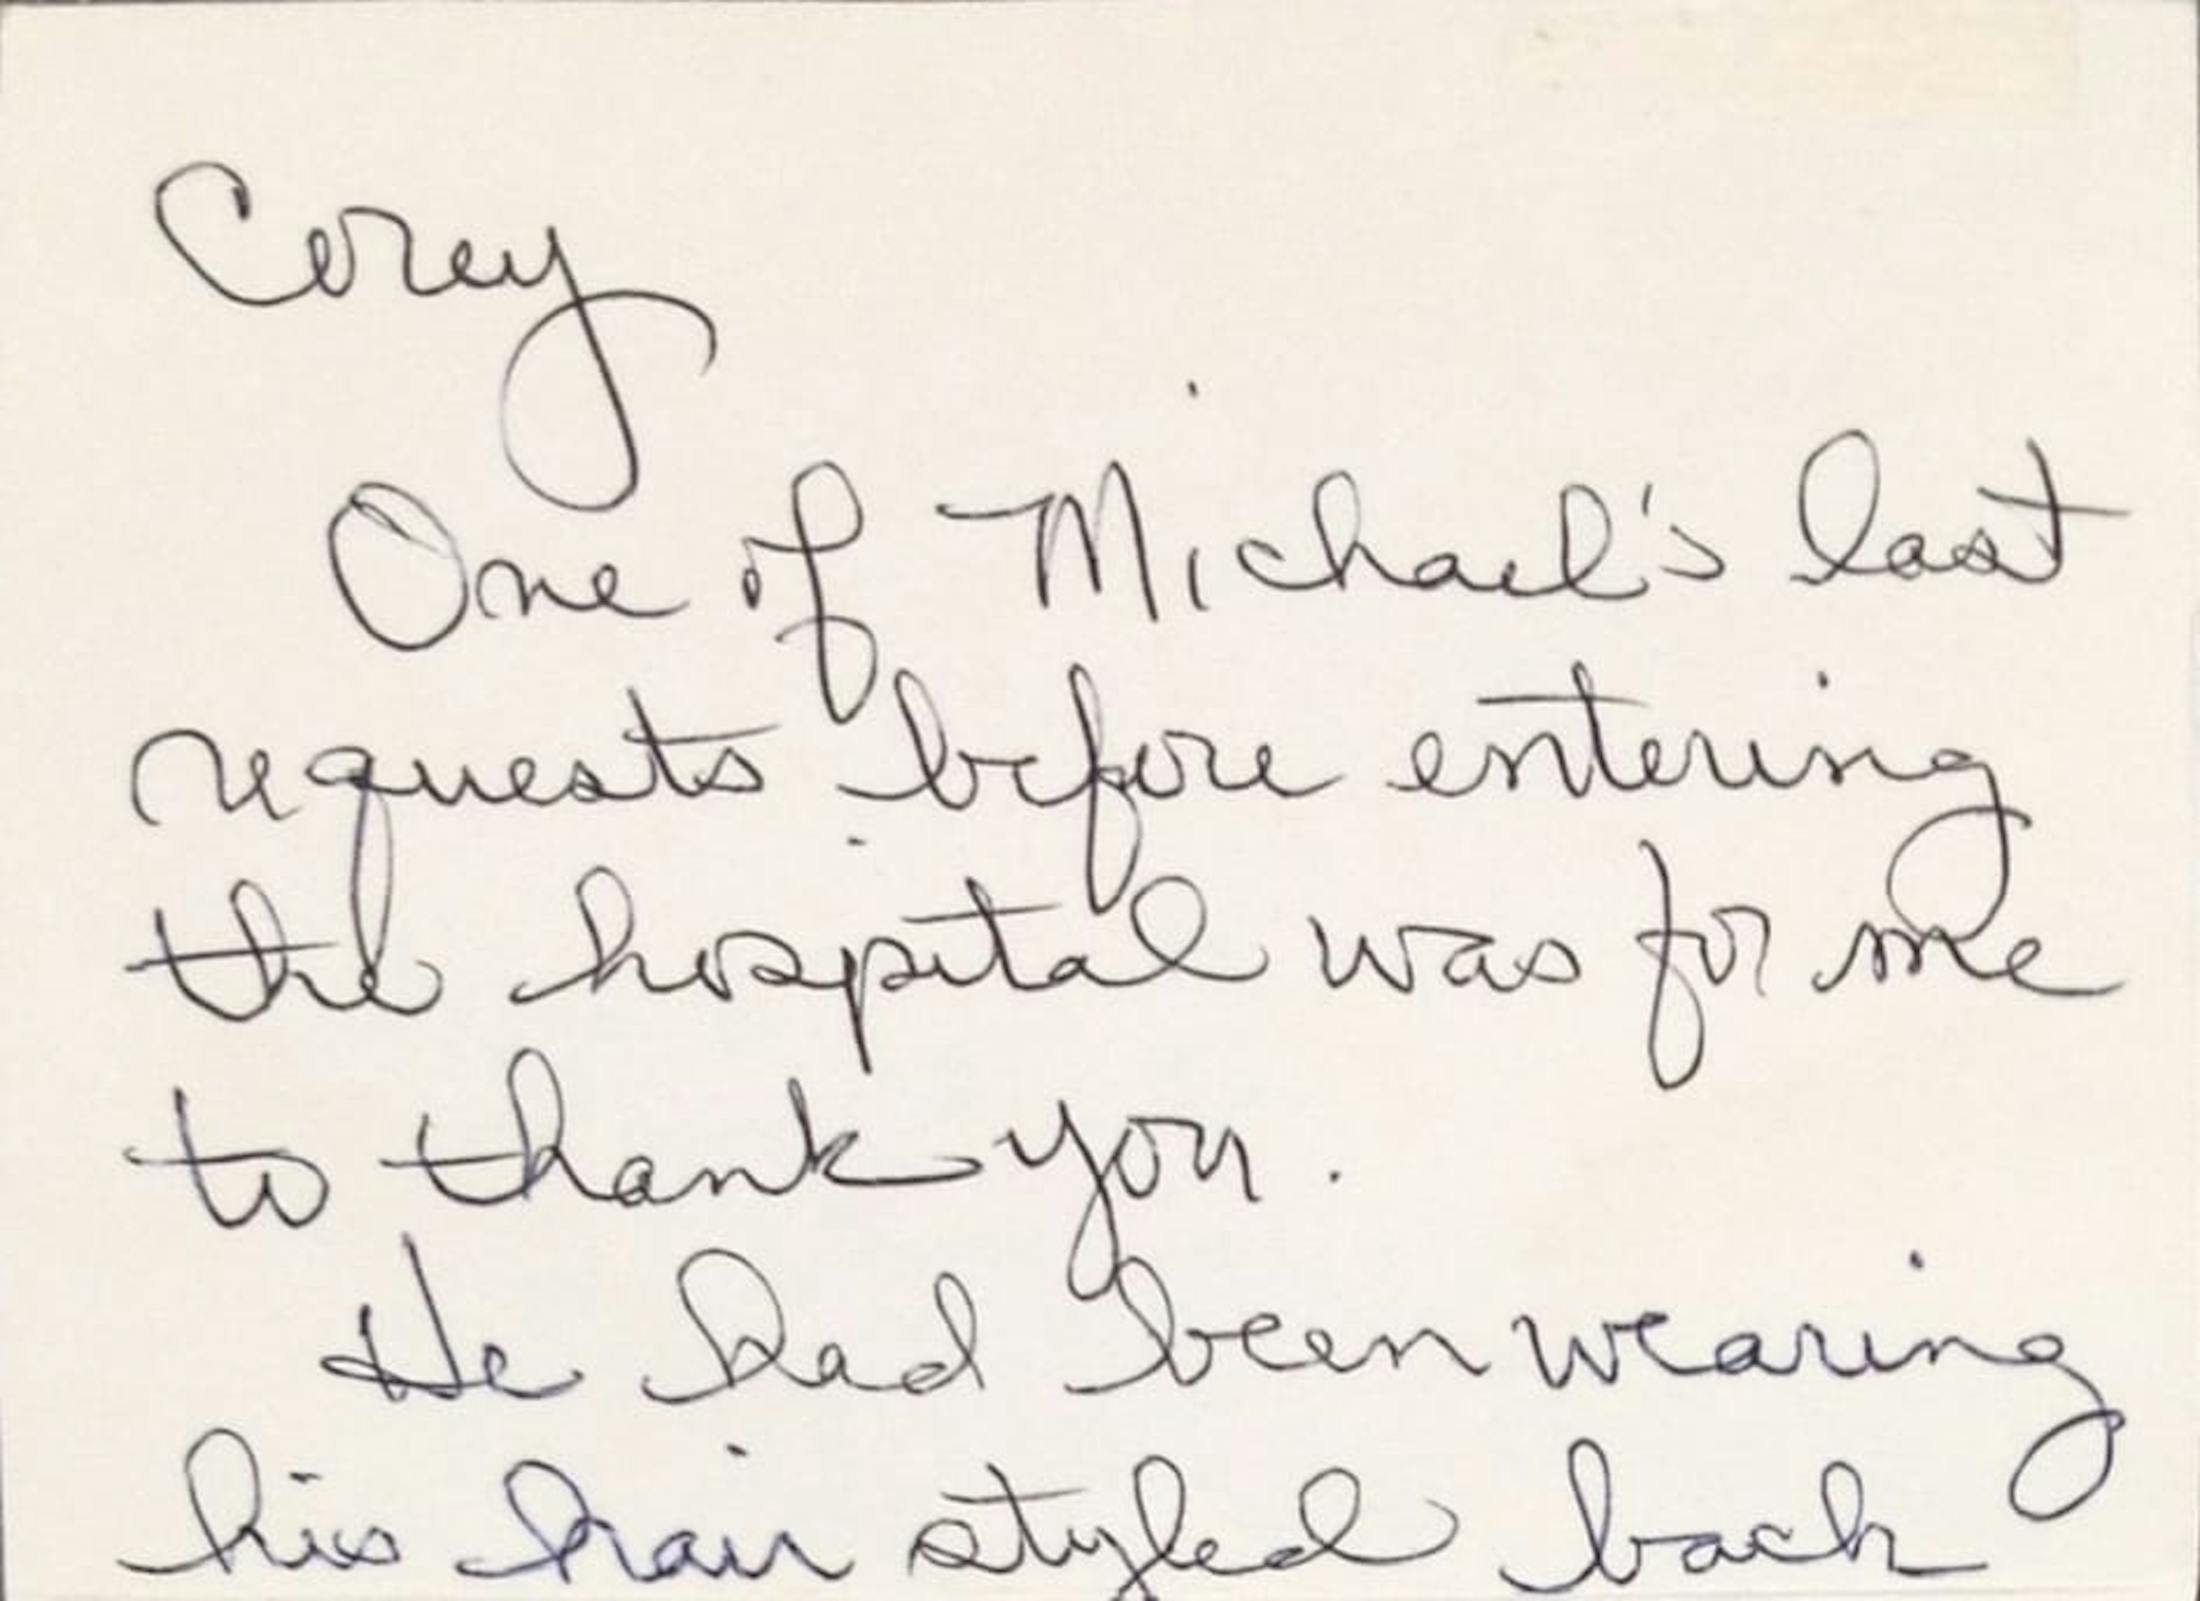 Corey
One of Michael's last
requests before entering
the hospital was for me
to thank you.
He had been wearing
his hair styled back